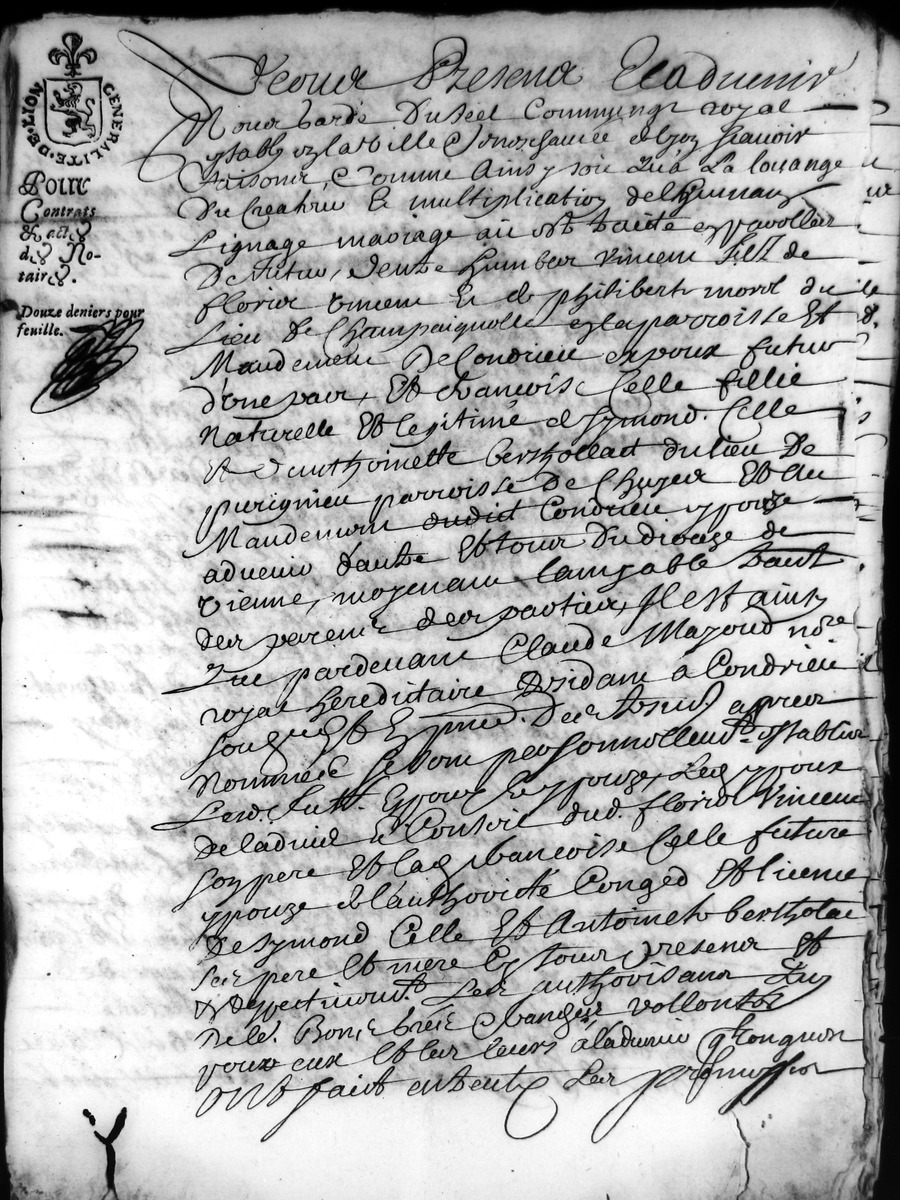 GENERALITE·DE·LYON
Pour
Contrats
& actes
des No-
taires.
Douze deniers pour
feuille.
A tous presens et advenir
Nous garde du seel commung royal
estably en la ville et seneschaucee de lyon scavoir
faisons, comme ainsy soit qua la louange
du createur et multiplication de lhumain
lignage mariage aict esté traité par parolles
de futur, dentre humbert vincent filz de
florid vincent et de philiberte morel du
lieu de champaignolle en la parroisse et
mandement de condrieu espoux futur
d'une part, et francoise celle fillie
naturelle et legitime de symond celle
et d'anthoinette bertholat du lieu de
parroisse de chuyer et du
mandement dudict condrieu espouze
advenir d'autre et tous du dioceze de
vienne, moyenant lamyable traité
des parents des parties, Il est ainsy
que pardevant Claude Mazoud nore
royal hereditaire residant a Condrieu
soubzne et presents les tesmoings appres
nommés se sont personnellemt establis
lesd. futt. espoux et espouze, led espoux
de ladvis et consort dud. florid vincent
son pere et lad francoise celle future
espouze de l'authorité conged et licence
de symond celle et antoinette bertholat
ses pere et mere cy tous presens et
respectivemt. les authorisans
de le. bons, et vollontés
pour eux et les leurs à ladvenir
ont fait entre eux les promesses